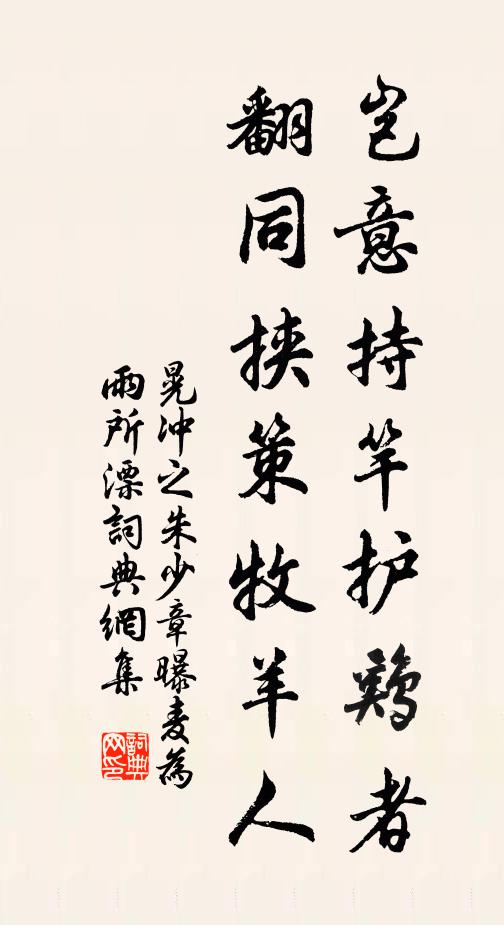 岂意持竿护鷄者
翻同挟策牧羊人
晁冲之朱少章曝麦為
雨所漂詞典網集
詞典网印